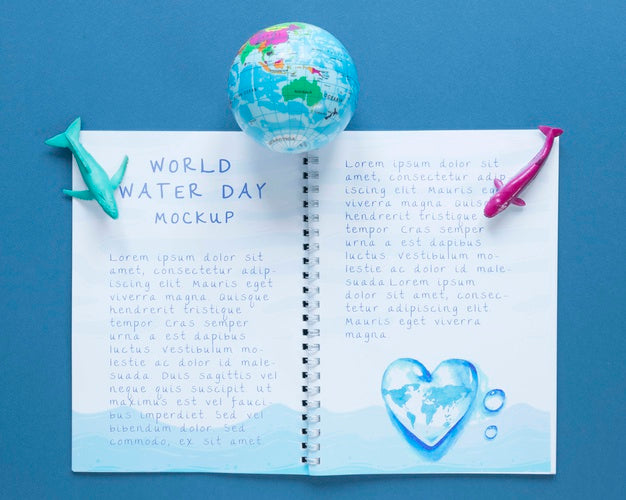 WORLD
WATER DAY
MOCKUP
Lorem ipsum dolor sit
amet, consectetur adip-
iscing elit. Vivamus eget
viverra magna. Quisque
hendrerit tristique
tempor. Cras semper
urna a est dapibus
luctus. Vestibulum mo-
lestie ac dolor id male-
suada. Duis sagittis vel
neque quis suscipit. Ut
maximus est vel fauci-
bus imperdiet. Sed vel
bibendum dolor. Sed
commodo, ex sit amet
Lorem ipsum dolor sit
amet, consectetur adip-
iscing elit. Vivamus eget
viverra magna. Quisque
hendrerit tristique
tempor. Cras semper
urna a est dapibus
luctus. Vestibulum mo-
lestie ac dolor id male-
suada.Lorem ipsum
dolor sit amet, consec-
tetur adipiscing elit.
Vivamus eget viverra
magna